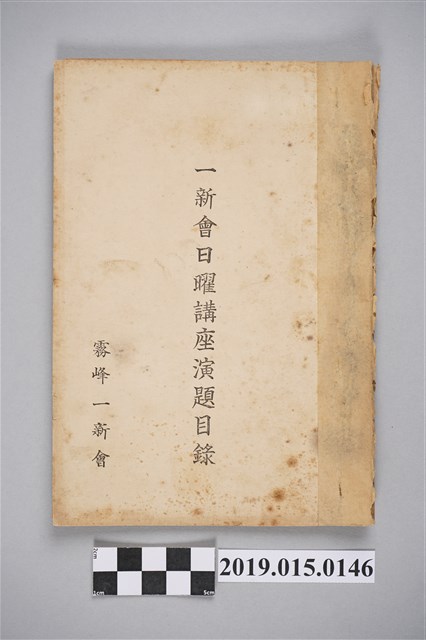 一新會日曜講座演題目錄
霧峰一新會
2cm
1cm
5cm
2019.015.0146